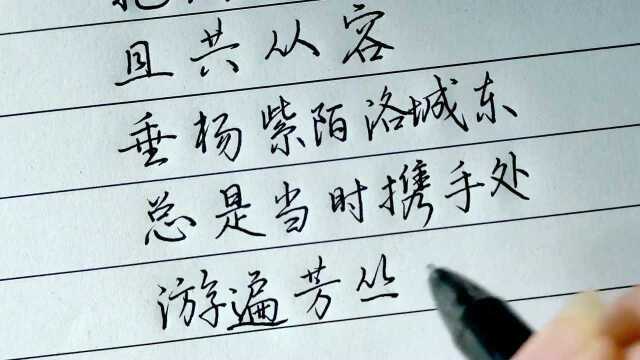 且共从容
垂杨紫陌洛城东
总是当时携手处
游遍芳丛